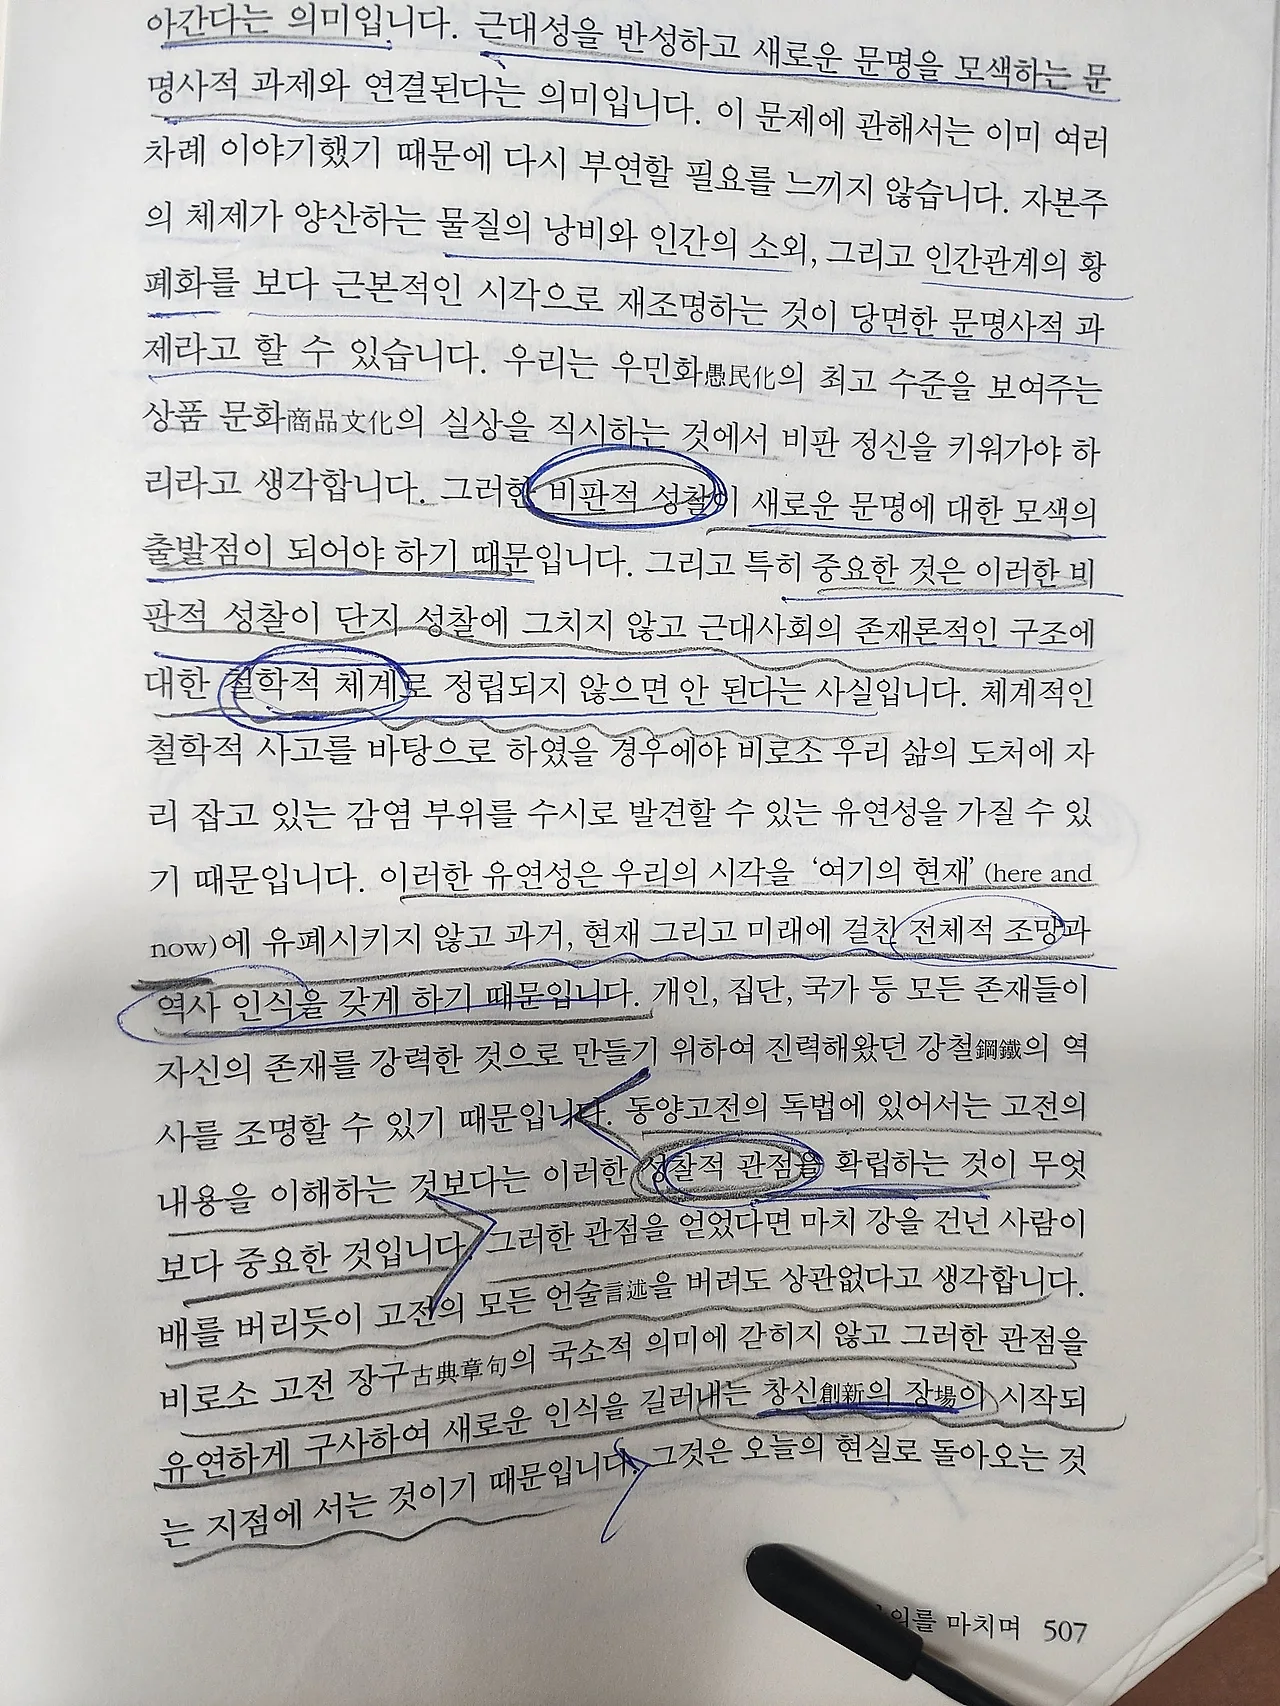 아간다는 의미입니다. 근대성을 반성하고 새로운 문명을 모색하는 문
명사적 과제와 연결된다는 의미입니다. 이 문제에 관해서는 이미 여러
차례 이야기했기 때문에 다시 부연할 필요를 느끼지 않습니다. 자본주
의 체제가 양산하는 물질의 낭비와 인간의 소외, 그리고 인간관계의 황
폐화를 보다 근본적인 시각으로 재조명하는 것이 당면한 문명사적 과
제라고 할 수 있습니다. 우리는 우민화愚民化의 최고 수준을 보여주는
상품 문화商品文化의 실상을 직시하는 것에서 비판 정신을 키워가야 하
리라고 생각합니다. 그러한 비판적 성찰이 새로운 문명에 대한 모색의
출발점이 되어야 하기 때문입니다. 그리고 특히 중요한 것은 이러한 비
판적 성찰이 단지 성찰에 그치지 않고 근대사회의 존재론적인 구조에
대한 철학적 체계로 정립되지 않으면 안 된다는 사실입니다. 체계적인
철학적 사고를 바탕으로 하였을 경우에야 비로소 우리 삶의 도처에 자
리 잡고 있는 감염 부위를 수시로 발견할 수 있는 유연성을 가질 수 있
기 때문입니다. 이러한 유연성은 우리의 시각을 ‘여기의 현재’(here and
now)에 유폐시키지 않고 과거, 현재 그리고 미래에 걸친 전체적 조망과
역사 인식을 갖게 하기 때문입니다. 개인, 집단, 국가 등 모든 존재들이
자신의 존재를 강력한 것으로 만들기 위하여 진력해왔던 강철鋼鐵의 역
사를 조명할 수 있기 때문입니다. 동양고전의 독법에 있어서는 고전의
내용을 이해하는 것보다는 이러한 성찰적 관점을 확립하는 것이 무엇
보다 중요한 것입니다. 그러한 관점을 얻었다면 마치 강을 건넌 사람이
배를 버리듯이 고전의 모든 언술言述을 버려도 상관없다고 생각합니다.
비로소 고전 장구古典章句의 국소적 의미에 갇히지 않고 그러한 관점을
유연하게 구사하여 새로운 인식을 길러내는 창신創新의 장場이 시작되
는 지점에 서는 것이기 때문입니다. 그것은 오늘의 현실로 돌아오는 것
마치며 507